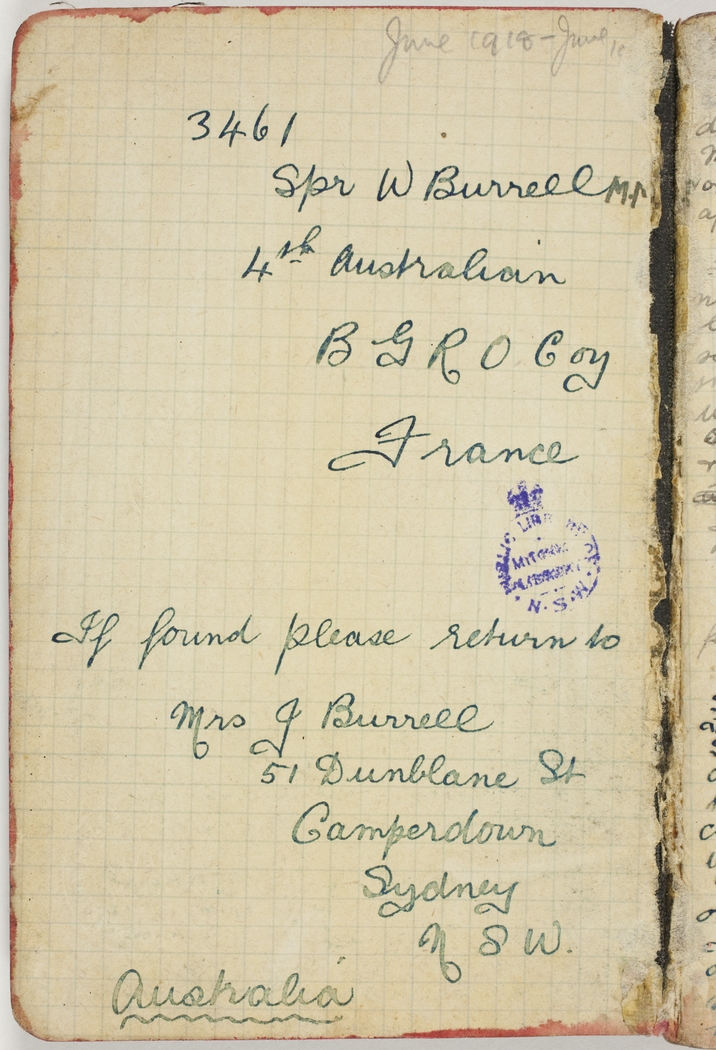 June 1918 - June
3461
Spr W Burrell M.M
4th Australian
B G R O Coy
France
PUBLIC LIBRARY OF
MITCHELL
LIBRARY
N.S.W.
If found please return to
Mrs J Burrell
51 Dunblane St
Camperdown
Sydney
N S W.
Australia